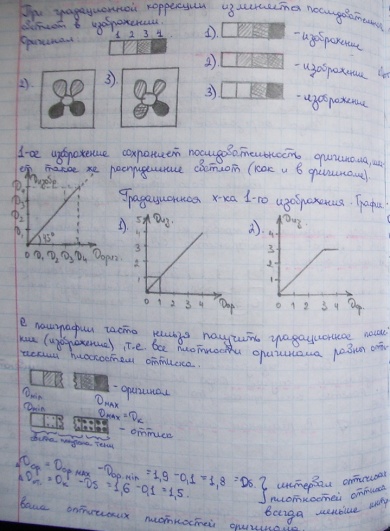 При градационной коррекции изменяется последователь
светлот в изображении.
Оригинал 1 2 3 4
1). - изображение
2) - изображение
3) - изображение
2). 3)
1-ое изображение сохраняет последовательность оригинала,
такое же распределение светлот (как и в оригинале)
Градационная х-ка 1-го изображения. Графи
45°
1). 2).
Dиз. Dиз.
Dор. Dор.
В полиграфии часто нельзя получить градационное
(изображении), т.е. все плотности оригинала равны опти
ческим плоскостем оттиска.
- оригинал
Dmin Dmax
Dmin Dmax = Dк
- оттиск
Dор = Dор max - Dор min = 1,9 - 0,1 = 1,8
Dот. = Dк - Dб = 1,6 - 0,1 = 1,5.
интервал оптических
плотностей оттиска
всегда меньше интер
вала оптических плотностей оригинала.